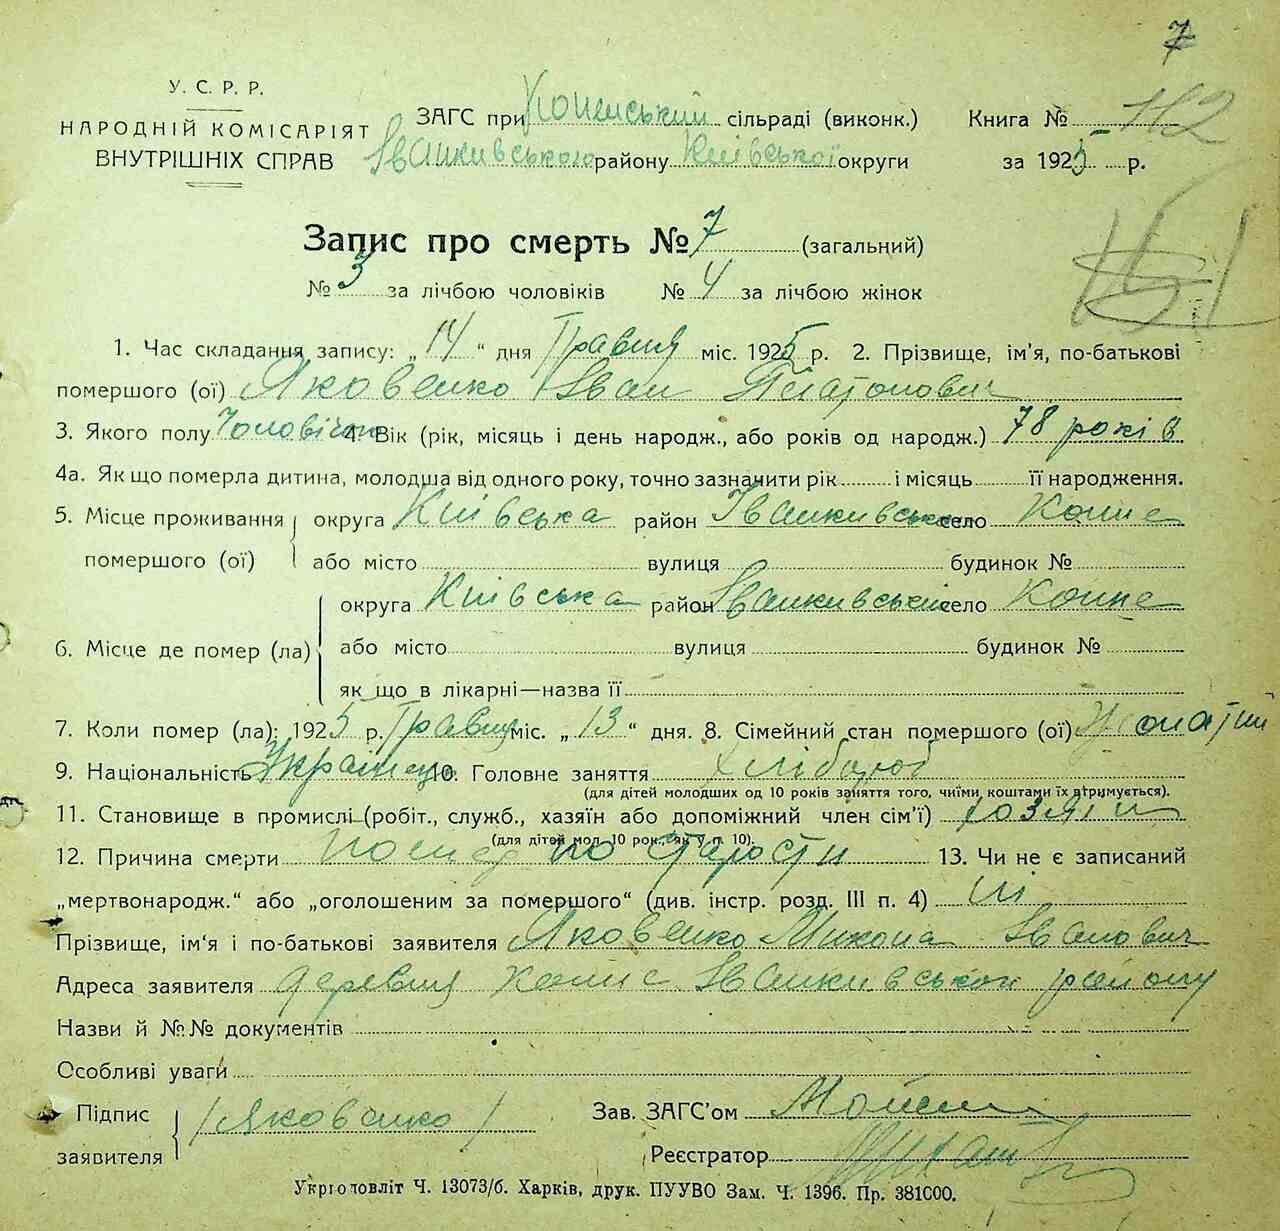 7
У. С. Р. Р.
НАРОДНІЙ КОМІСАРІЯТ
ВНУТРІШНІХ СПРАВ
ЗАГС при сільраді (виконк.) Книга № 112
Іванкивського району Київської округи за 1925 р.
Запис про смерть № 7 (загальний)
№ 3 за лічбою чоловіків № 4 за лічбою жінок
1. Час складання запису: „14“ дня Травня міс. 1925 р. 2. Прізвище, ім’я, по-батькові
помершого (ої) Яковенко Іван Платонович
3. Якого полу Чоловічог 4. Вік (рік, місяць і день народж., або років од народж.) 78 років
4а. Як що померла дитина, молодша від одного року, точно зазначити рік і місяць її народження.
5. Місце проживання помершого (ої) округа Київська район Іванкивський село Копие
або місто вулиця будинок №
6. Місце де помер (ла) округа Київська район Іванкивський село Копие
або місто вулиця будинок №
як що в лікарні—назва її
7. Коли помер (ла): 1925 р. Травня міс. „13“ дня. 8. Сімейний стан помершого (ої) Жонатий
9. Національність Українец 10. Головне заняття Хлібороб
(для дітей молодших од 10 років заняття того, чиїми коштами їх втримується).
11. Становище в промислі (робіт., служб., хазяїн або допоміжний член сім’ї) хозяїн
(для дітей мол. 10 рок., як у п. 10).
12. Причина смерти Помер по старости 13. Чи не є записаний
„мертвонародж.“ або „оголошеним за помершого“ (див. інстр. розд. III п. 4) ні
Прізвище, ім’я і по-батькові заявителя Яковенко Микола Іванович
Адреса заявителя деревня Копие Іванкивського району
Назви й №№ документів
Особливі уваги
Підпис заявителя /Яковенко/ Зав. ЗАГС’ом
Реєстратор
Укрголовліт Ч. 13073/б. Харків, друк. ПУУВО Зам. Ч. 1396. Пр. 381000.